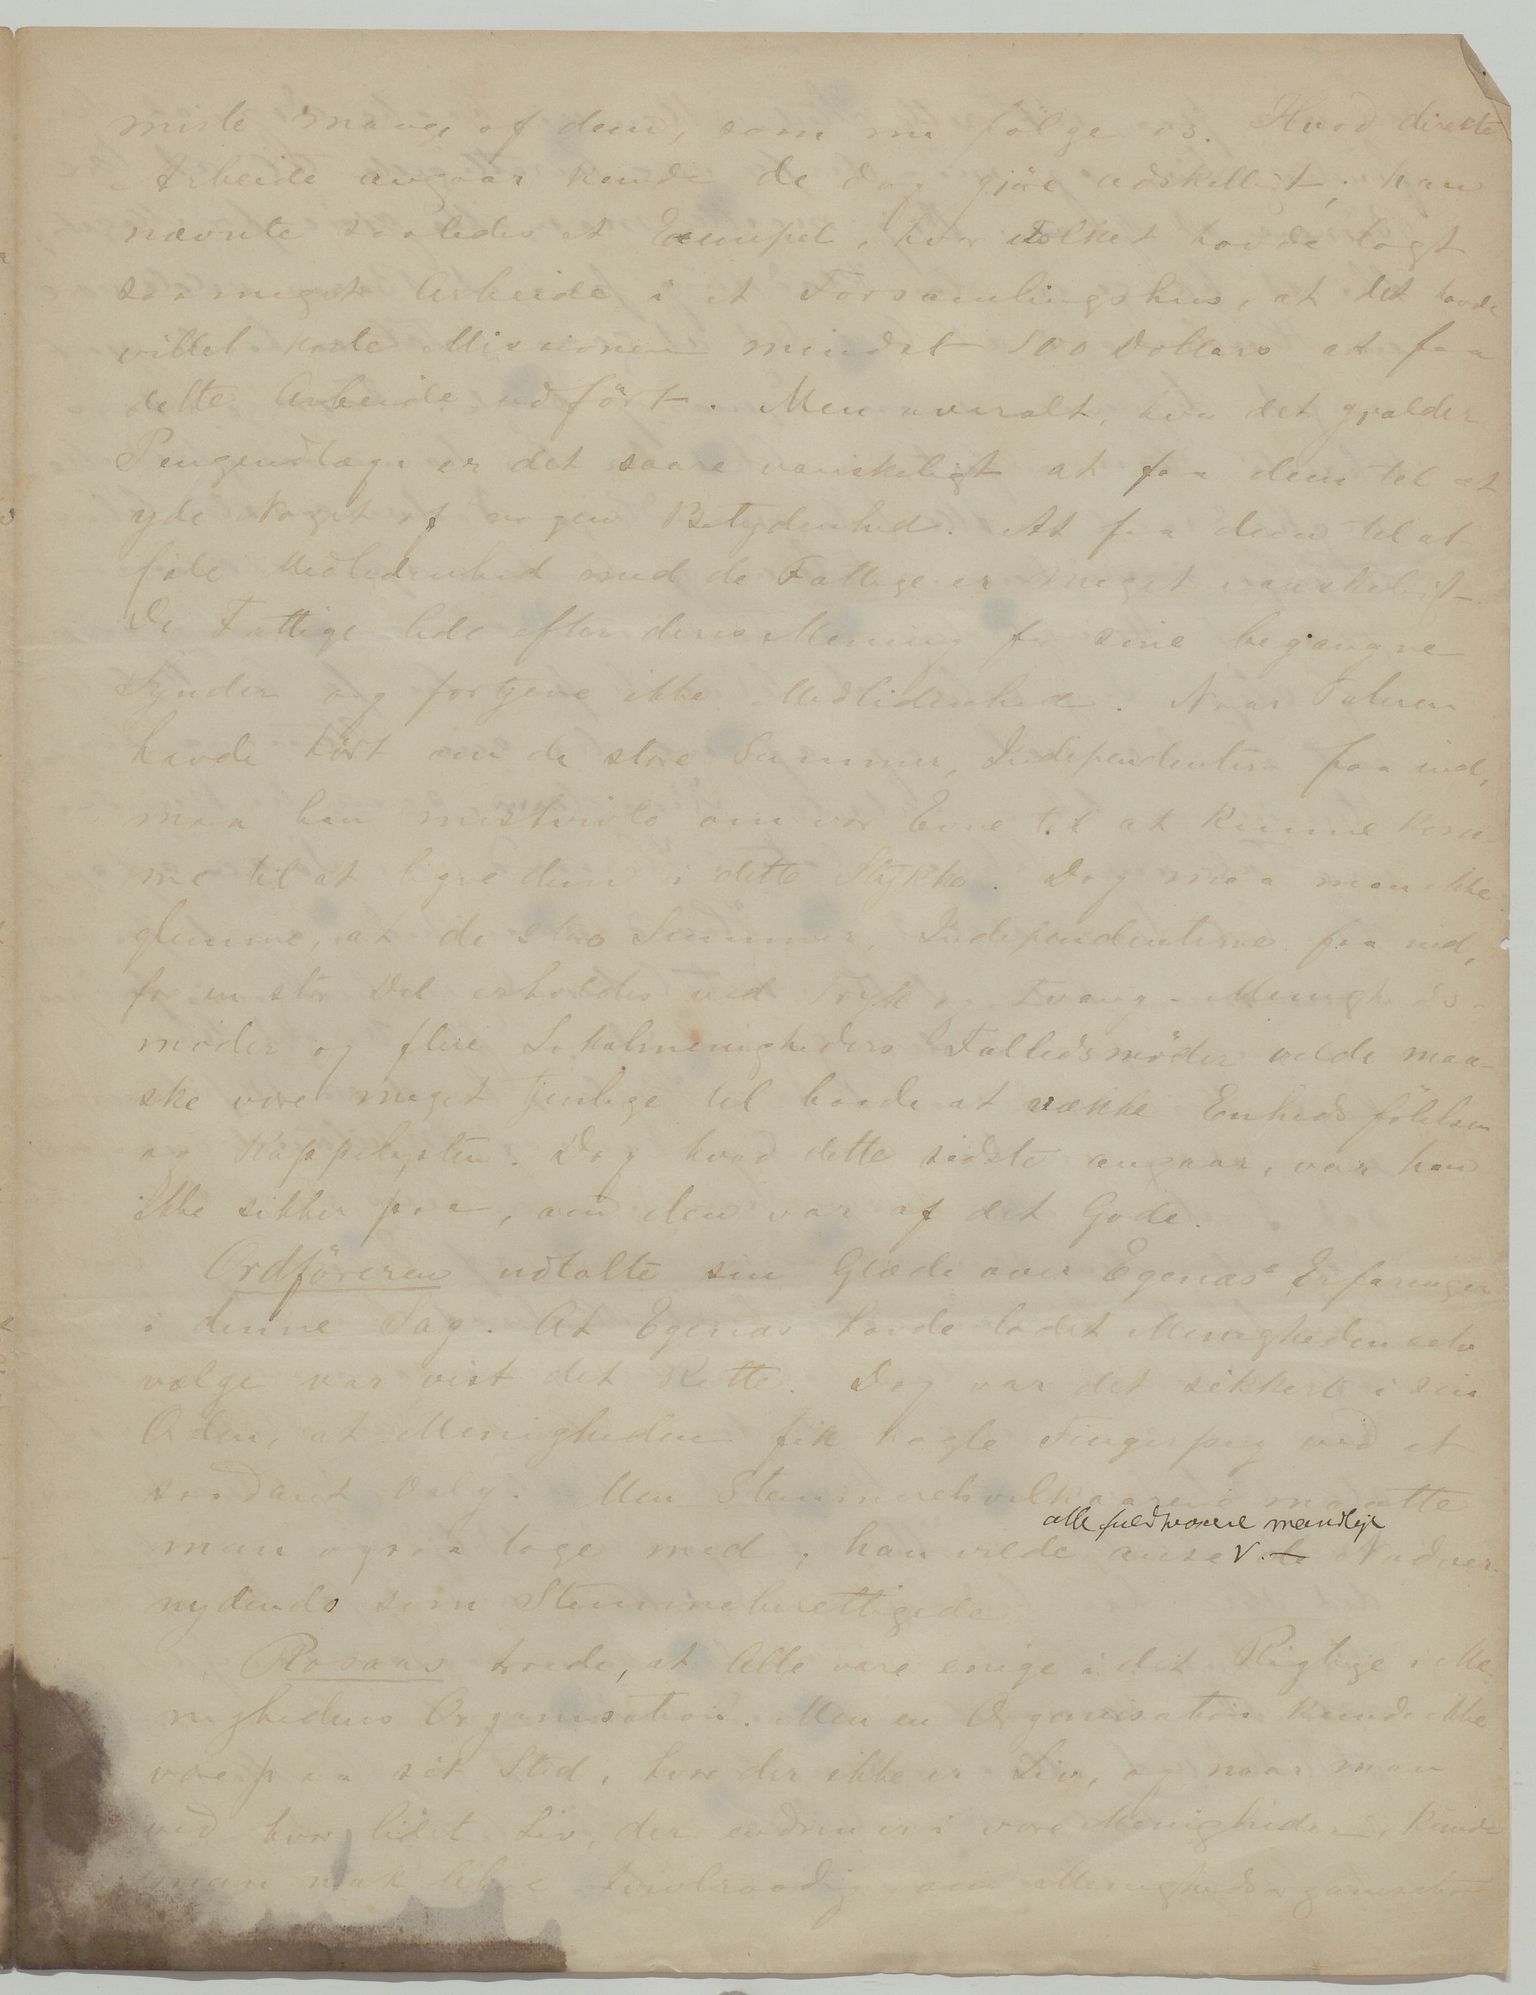 miste mange af dem, som nu følge os. Hvad direkte
Arbeide angaar kunde de dog gjöre adskilligt; han
nævnte saaledes et Exempel, hvor Folket havde lagt
saa meget Arbeide i et Forsamlingshus, at det havde
villet koste Missionen mindst 500 Dollars at faa
dette Arbeide udfört. Men overalt, hvor det gjælder
Pengeudlæg er det saare vanskeligt at faa dem til at
yde Noget af nogen Betydenhed. At faa dem til at
føle Medlidenhed med de Fattige er meget vanskeligt
De Fattige lide efter deres Mening for sine begangne
Synder og fortjene ikke Medlidenhed. Naar Taleren
havde hört om de store Summer, Independenterne faa ind,
maa han mistvivle om vor Evne til at kunne kom-
me til at ligne dem i dette Stykke. Dog maa man ikke
glemme, at de store Summer, Independenterne faa ind,
for en stor Del erholdes ved Tryk og Tvang. Menigheds-
møder og flere Lokalmenigheders Fælledsmøder vilde maa-
ske være meget tjenlige til baade at vække Enhedsfölelsen
og Kappelysten. Dog hvad dette sidste angaar, var han
ikke sikker paa, om den var af det Gode.
Ordföreren udtalte sin Glæde over Egenæs' Erfaringer
i denne Sag. At Egenæs havde ladet Menigheden selv
vælge var vist det Rette. Dog var det sikkert i sin
Orden, at Menigheden fik nogle Fingerpeg ved et
saadant Valg. Men Stemmerets maatte
alle fuldvoxne mandlige
man ogsaa tage med; han vilde anse V. de Nadver-
nydende som Stemmeberettigede
Rosaas troede, at Alle vare enige i det Rigtige i Me-
nighedens Organisation. Men en Organisation kunde ikke
være paa sit Sted, hvor der ikke er Liv, og naar man
ved hvor lidet Liv, der endnu er i vore Menigheder, kunde
man nok blive tvivlraadig om Menighedsorganisation